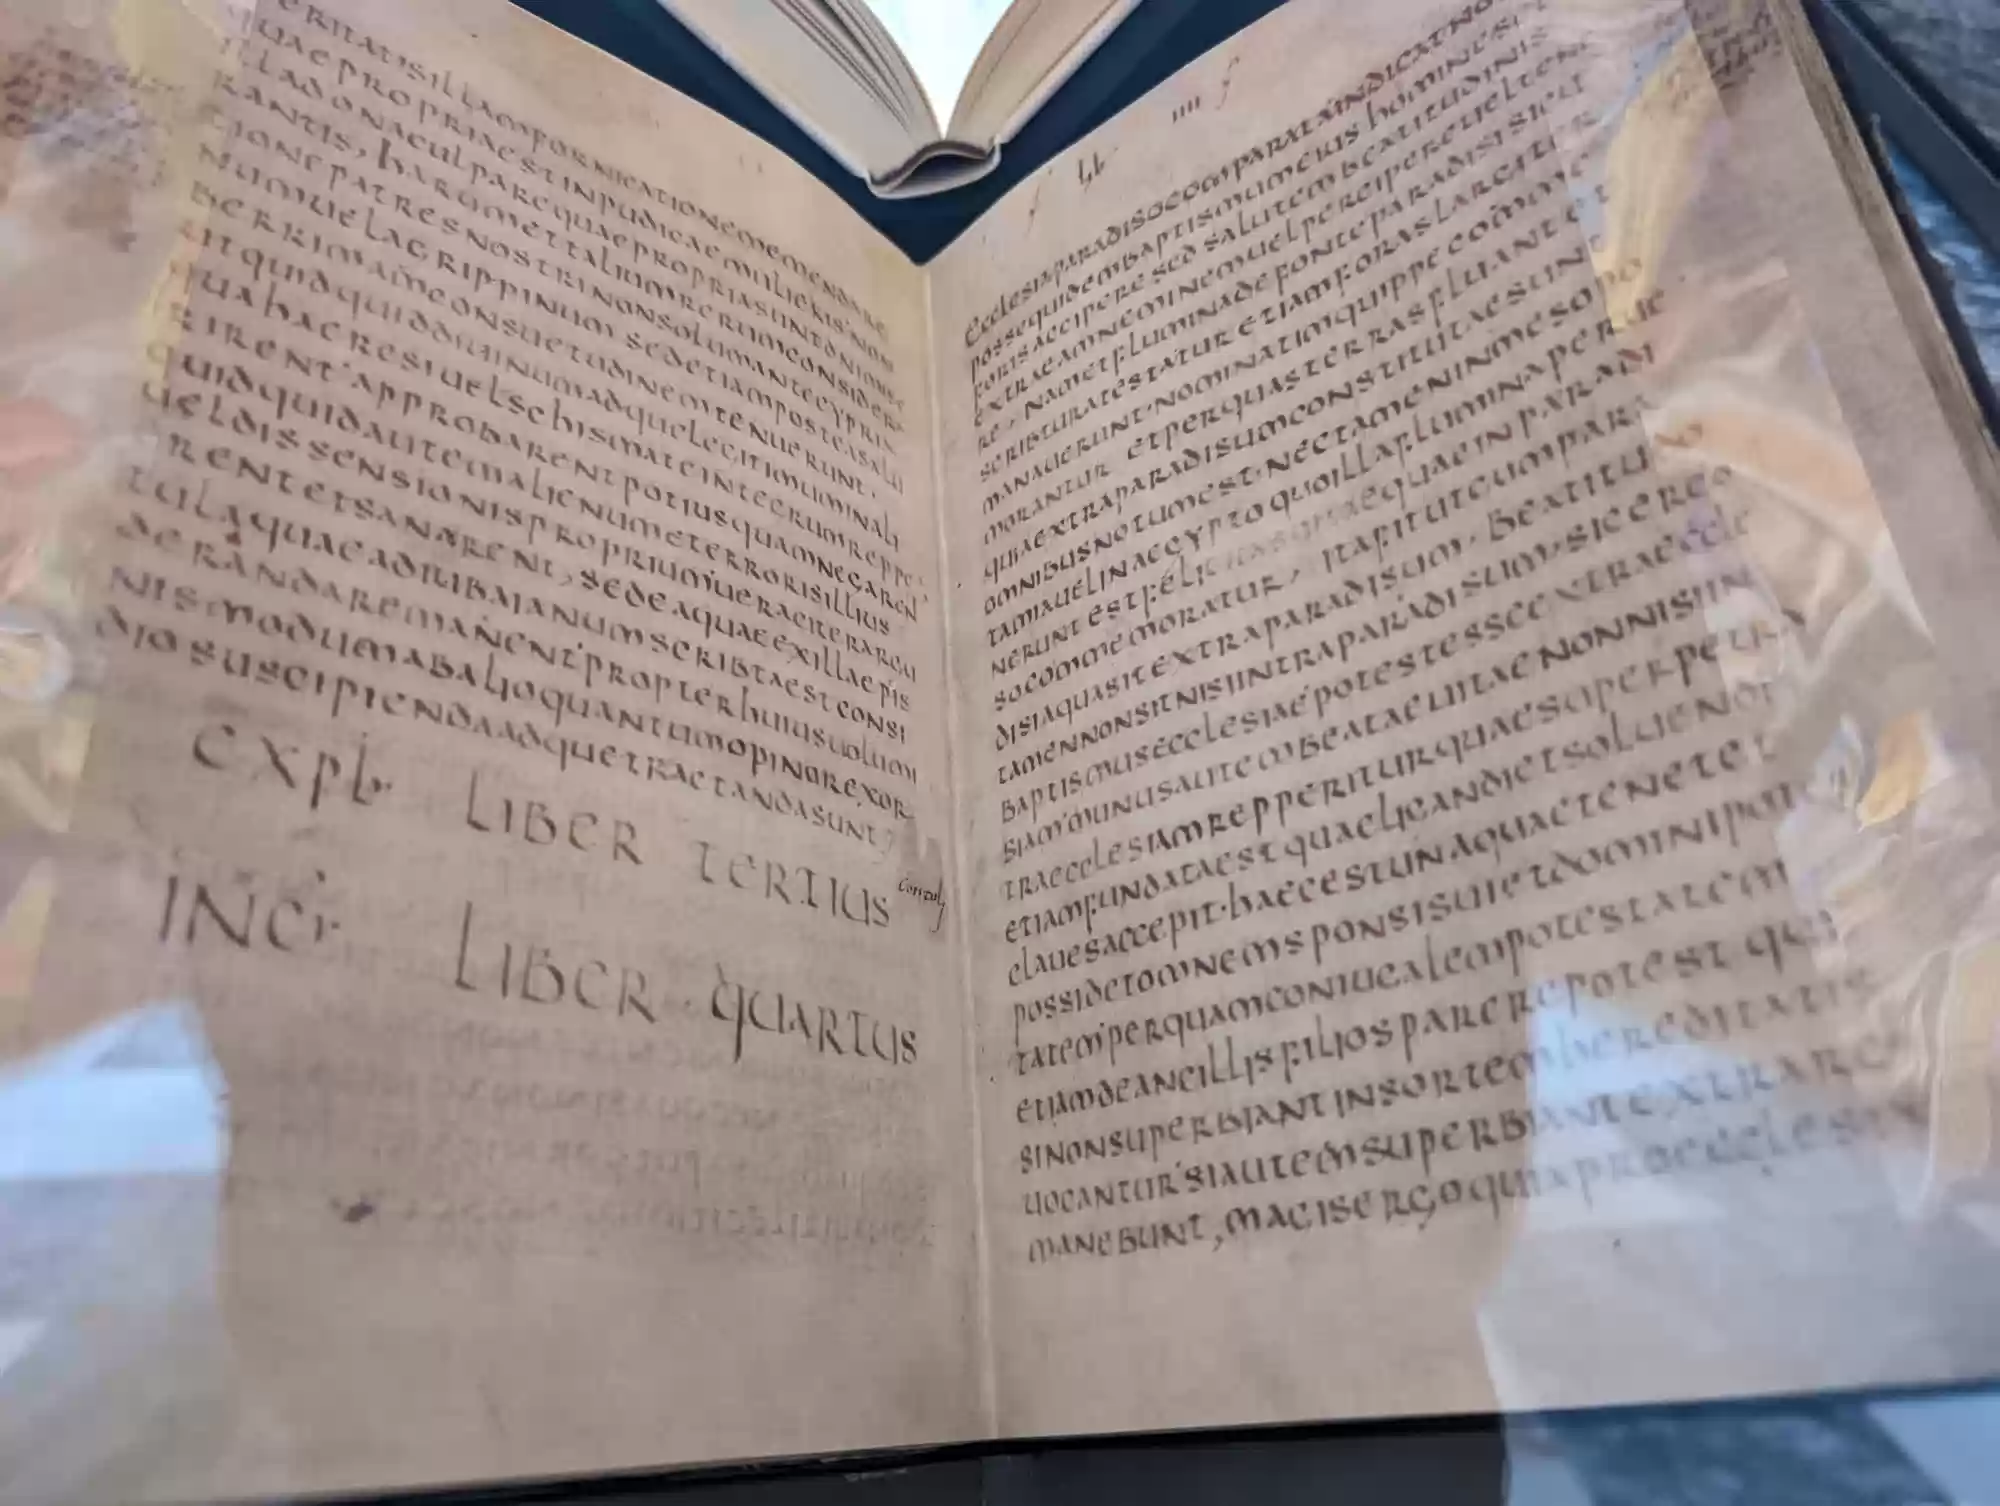 ERITATIS ILLAM FORNICATIONEM EMENDARE
QUAE PROPRIA EST INPUDICAE MULIERIS NON
ILLA DONA CULPARE QUAE PROPRIA SUNT DNI ONE
RANTIS, HARUM ET TALIUM RERUM CONSIDERA
TIONE PATRES NOSTRI NON SOLUM ANTE CYPRIA
NUM UEL AGRIPPINUM SED ETIAM POSTEA SALU
BERRIMAM CONSUETUDINEM TENUERUNT.
UT QUIDQUID DIUINUM ADQUE LEGITIMUM IN ALI
QUA HAERESI UEL SCHISMATE INTEGRUM REPPE
RIRENT APPROBARENT POTIUS QUAM NEGAREN
QUIDQUID AUTEM ALIENUM ET ERRORIS ILLIUS
UEL DISSENSIONIS PROPRIUM UERACITER ARGU
RENT ET SANARENT, SED EA QUAE EX ILLA EPIS
TULA QUAE AD IUBAIANUM SCRIBTA EST CONSI
DERANDA REMANENT PROPTER HUIUS UOLUMI
NIS MODUM AB ALIO QUANTUM OPINOR EXOR
DIO SUSCIPIENDA ADQUE TRACTANDA SUNT
EXPL· LIBER TERTIUS
INC· LIBER QUARTUS
IIII
ECCLESIA PARADISO COMPARATA INDICAT NO
POSSE QUIDEM BAPTISMUM EIUS HOMINES
FORIS ACCIPERE SED SALUTEM BEATITUDINIS
EXTRA EAM NEMINEM UEL PERCIPERE UEL TENE
RE, NAM ET FLUMINA DE FONTE PARADISI SICUT
SCRIBTURA TESTATUR ETIAM FORAS LARGITER
MANAUERUNT· NOMINATIM QUIPPE COMME
MORANTUR ET PER QUAS TERRAS FLUANT ET
QUIA EXTRA PARADISUM CONSTITUTAE SUNT
OMNIBUS NOTUM EST· NEC TAMEN IN MESOPO
TAMIA UEL IN AEGYPTO QUO ILLA FLUMINA PERUE
NERUNT EST FELICITAS UITAE QUAE IN PARADI
SO COMMEMORATUR, ITA FIT UT CUM PARA
DISI AQUA SIT EXTRA PARADISUM· BEATITU
TAMEN NON SIT NISI INTRA PARADISUM· SIC ERGO
BAPTISMUS ECCLESIAE POTEST ESSE EXTRA ECCLE
SIAM MUNUS AUTEM BEATAE UITAE NON NISI IN
TRA ECCLESIAM REPPERITUR QUAE SUPER PETRA
ETIAM FUNDATA EST QUAE LIGANDI ET SOLUENDI
CLAUES ACCEPIT· HAEC EST UNA QUAE TENET ET
POSSIDET OMNEM SPONSI SUI ET DOMINI POTES
TATEM PER QUAM CONIUGALEM POTESTATEM
ETIAM DE ANCILLIS FILIOS PARERE POTEST QUI
SI NON SUPERBIANT IN SORTEM HEREDITATIS
UOCANTUR SI AUTEM SUPERBIANT EXTRA RE
MANEBUNT, MAGIS ERGO QUIA PRO ECCLESIA